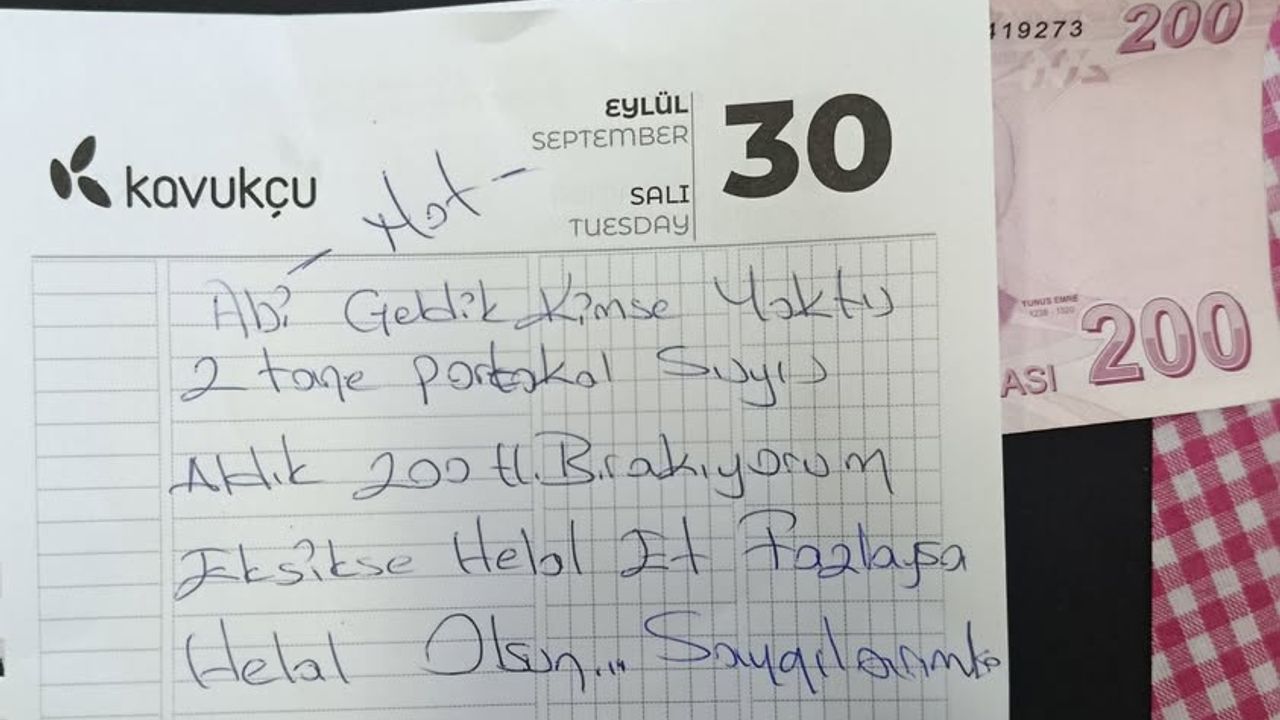 kavukçu
EYLÜL
SEPTEMBER
SALI
TUESDAY
30
- Not -
Abi Geldik Kimse Yoktu
2 tane portakal Suyu
Aldık 200 tl. Bırakıyorum
Eksikse Helal Et Fazlaysa
Helal Olsun... Saygılarımla
419273
200
YUNUS EMRE
200
ASI